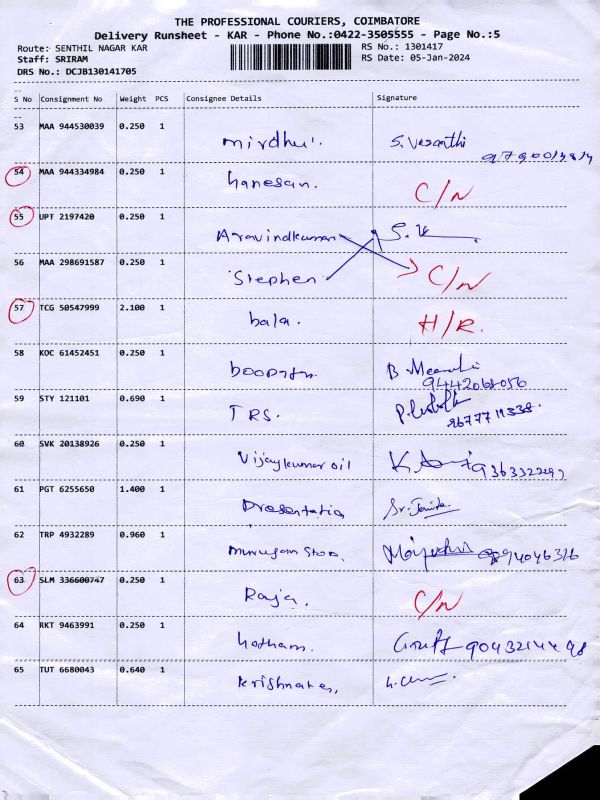 THE PROFESSIONAL COURIERS, COIMBATORE
Delivery Runsheet - KAR - Phone No.:0422-3505555 - Page No.:5
Route: SENTHIL NAGAR KAR RS No.: 1301417
Staff: SRIRAM RS Date: 05-Jan-2024
DRS No.: DCJB130141705
S No Consignment No Weight PCS Consignee Details Signature
53 MAA 944530039 0.250 1 mirdhul. S. Vesanthi
54 MAA 944334984 0.250 1 hanesan. C/N
55 UPT 2197420 0.250 1 Aravindkumar
56 MAA 298691587 0.250 1 Stephen C/N
57 TCG 50547999 2.100 1 bala. H/R.
58 KOC 61452451 0.250 1 B Meenakshi
59 STY 121101 0.690 1 TRS.
60 SVK 20138926 0.250 1 Vijaykumar oil
61 PGT 6255650 1.400 1 Presentation
62 TRP 4932289 0.960 1 murugan Store
63 SLM 336600747 0.250 1 Raja. C/N
64 RKT 9463991 0.250 1 hotham.
65 TUT 6680043 0.640 1